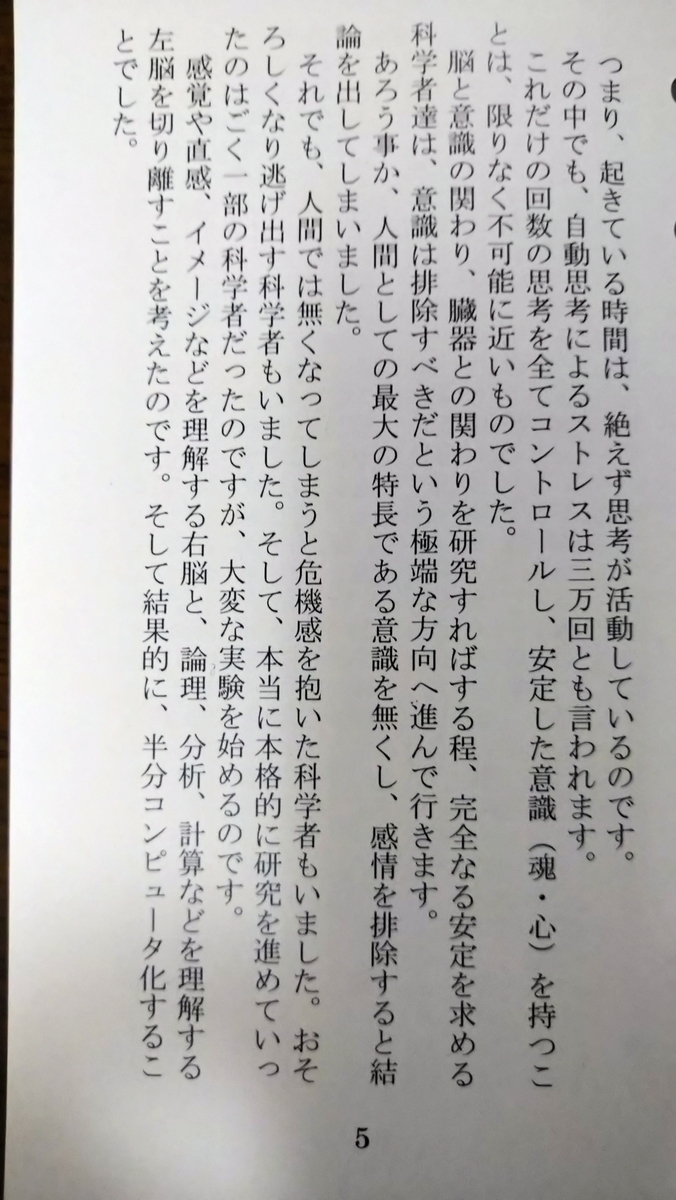 つまり、起きている時間は、絶えず思考が活動しているのです。
その中でも、自動思考によるストレスは三万回とも言われます。
これだけの回数の思考を全てコントロールし、安定した意識（魂・心）を持つこ
とは、限りなく不可能に近いものでした。
脳と意識の関わり、臓器との関わりを研究すればする程、完全なる安定を求める
科学者達は、意識は排除すべきだという極端な方向へ進んで行きます。
あろう事か、人間としての最大の特長である意識を無くし、感情を排除すると結
論を出してしまいました。
それでも、人間では無くなってしまうと危機感を抱いた科学者もいました。おそ
ろしくなり逃げ出す科学者もいました。そして、本当に本格的に研究を進めていっ
たのはごく一部の科学者だったのですが、大変な実験を始めるのです。
感覚や直感、イメージなどを理解する右脳と、論理、分析、計算などを理解する
左脳を切り離すことを考えたのです。そして結果的に、半分コンピュータ化するこ
とでした。
5